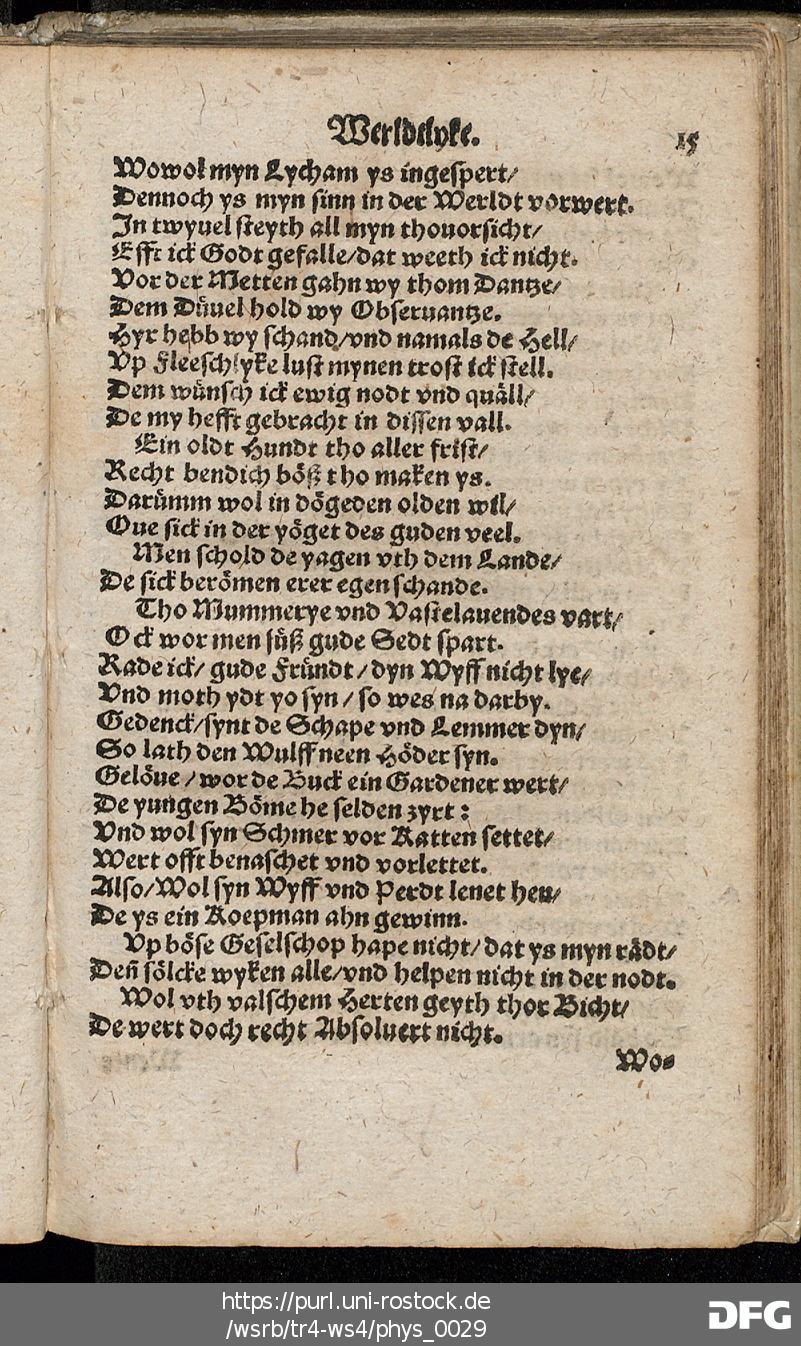 Werldelyke.
15
Wowol myn Lycham ys ingespert/
Dennoch ys myn sinn in der Werldt vorwert.
In twyuel steyth all myn thouorsicht/
Efft ick Godt gefalle/dat weeth ick nicht.
Vor der Metten gahn wy thom Dantze/
Dem Düuel hold wy Obseruantze.
Hyr hebb wy schand/vnd namals de Hell/
Vp Fleeschlyke lust mynen trost ick stell.
Dem wünsch ick ewig nodt vnd quäll/
De my hefft gebracht in dissen vall.
Ein oldt Hundt tho aller frist/
Recht bendich böß tho maken ys.
Darümm wol in dögeden olden wil/
Oue sick in der yöget des guden veel.
Men schold de yagen vth dem Lande/
De sick berömen erer egen schande.
Tho Mummerye vnd Vastelauendes vart/
Ock wor men süß gude Sedt spart.
Rade ick/ gude Fründt/dyn Wyff nicht lye/
Vnd moth ydt yo syn/so wes na darby.
Gedenck/synt de Schape vnd Lemmer dyn/
So lath den Wulff neen Höder syn.
Gelöue/wor de Buck ein Gardener wert/
De yungen Böme he selden zyrt:
Vnd wol syn Schmer vor Katten settet/
Wert offt benaschet vnd vorlettet.
Also/Wol syn Wyff vnd Perdt lenet hen/
De ys ein Koepman ahn gewinn.
Vp böse Geselschop hape nicht/dat ys myn rädt/
Deñ sölcke wyken alle/vnd helpen nicht in der nodt.
Wol vth valschem Herten geyth thor Bicht/
De wert doch recht Absoluert nicht.
Wo-
https://purl.uni-rostock.de
/wsrb/tr4-ws4/phys_0029
DFG